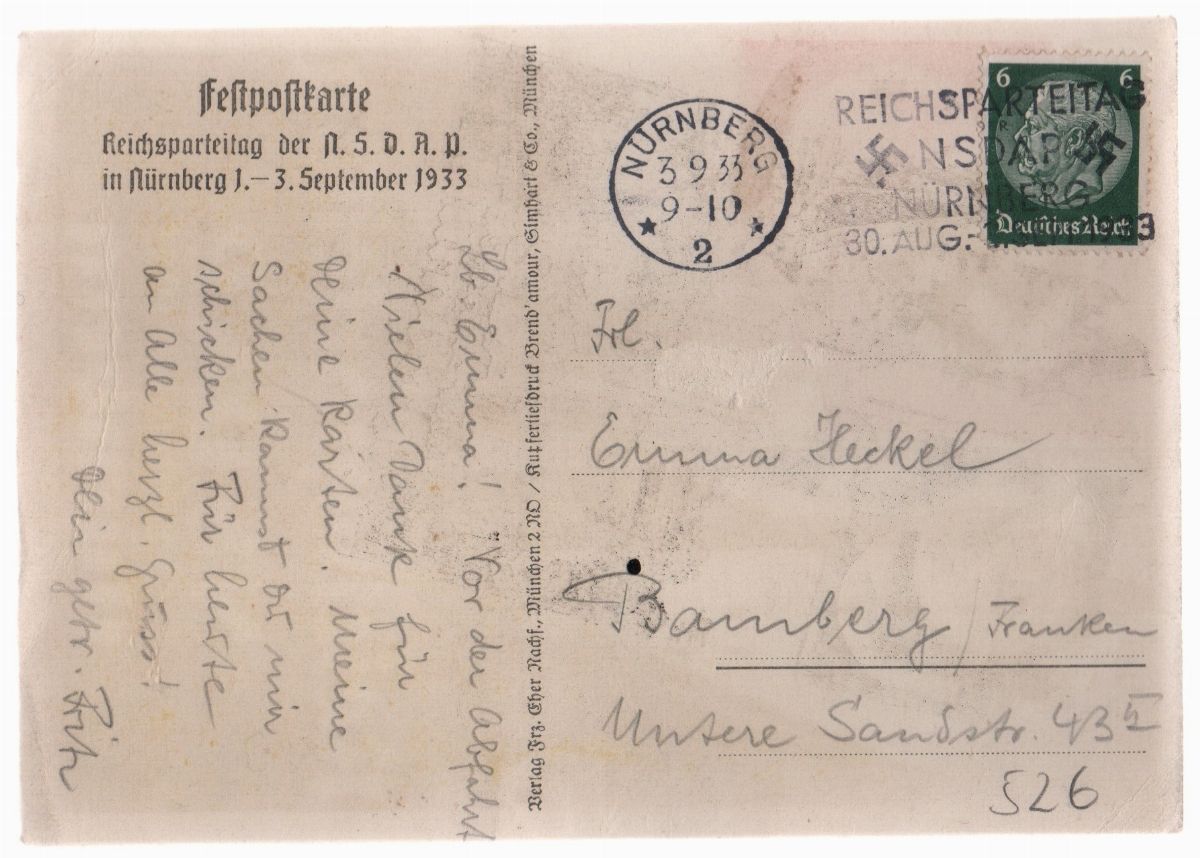 Festpostkarte
Reichsparteitag der N. S. D. A. P.
in Nürnberg 1.–3. September 1933
Lb. Emma! Vor der Abfahrt
Vielen Dank für
Deine Karten. Meine
Sachen kannst Du mir
schicken. Für heute
an Alle herzl. Gruss!
Dein getr. Fritz
Verlag Frz. Eher Nachf., München 2 NO / Kupfertiefdruck Brend'amour, Simhart & Co., München
NÜRNBERG
3 9 33
9–10
2
REICHSPARTEITAG
NSDAP
NÜRNBERG
30. AUG.- 1933
6 6
Deutsches Reich
Frl.
Emma Heckel
Bamberg Franken
Untere Sandstr. 43
526